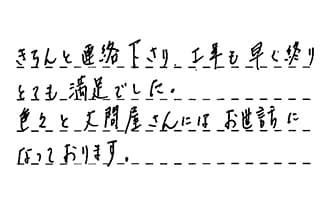 きちんと連絡下さり、工事も早く終り
とても満足でした。
色々と丈問屋さんにはお世話に
なっております。